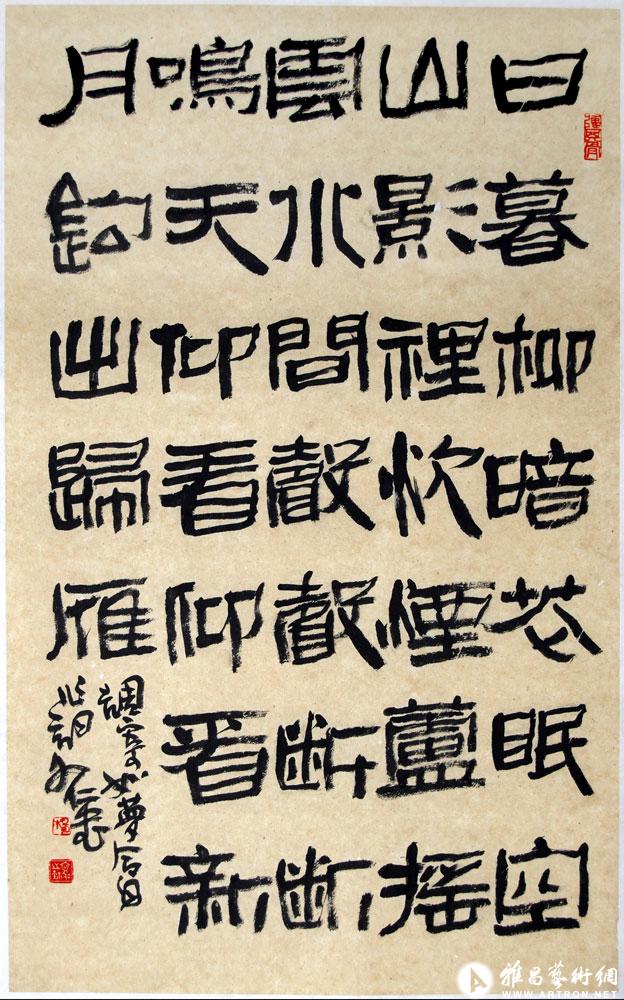 日暮柳暗花眠空
山影裡炊煙蘆搖
雲水間聲聲斷斷
鳴天仰看仰看新
月鉤出歸雁
調寄如夢令
雅昌藝術網
WWW.ARTRON.NET